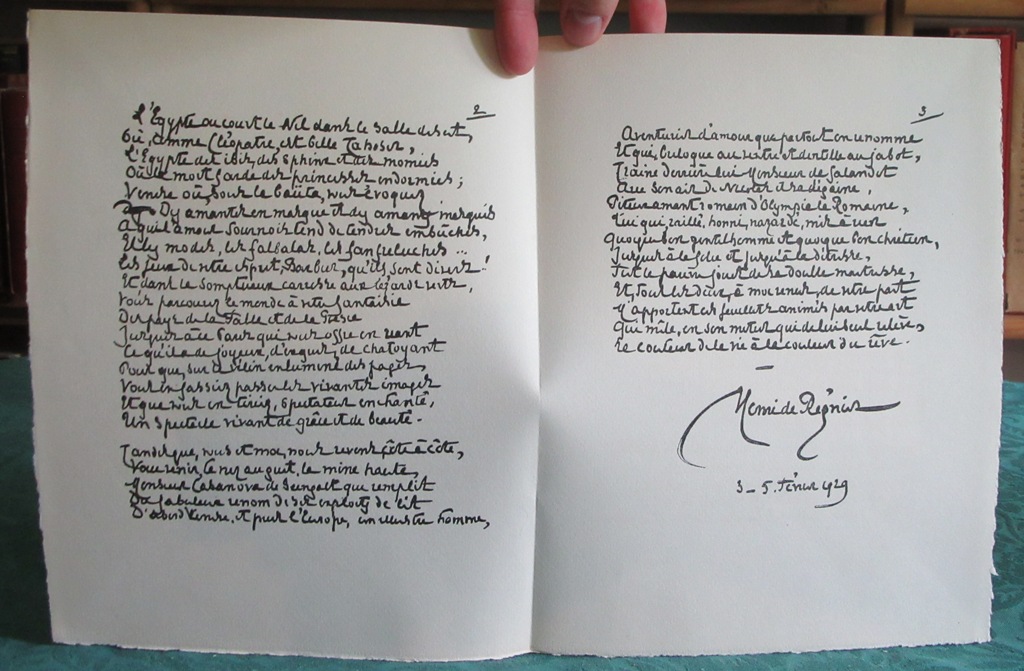 2
L'Egypte ou court le Nil dans le Salle desert,
Où, comme Cléopatre, est belle Tahoser,
L'Egypte des ibis, des Sphinx et des momies
Où la mort garde des princesses endormies ;
Venise où, sous la baüta, vous évoquez
Dy amantes en masque et dy amants masqués
A qui l'amour sournois tend de tendres embûches,
Et les modes, les falbalas, les fanfreluches ...
Les jeux de votre esprit, Barbier, qu'ils sont divers !
Et dans le somptueux carrosse aux lézards verts,
Vous parcourez le monde à votre fantaisie
Du pays de la Fable et de la
Jusques à ce Paris qui vous offre en riant
Ce qu'il a de joyeux, d'exquis, de chatoyant
Pour que, sur le vélin enluminé des pages,
Vous en fassiez passer les vivantes images
Et que vous en tiriez, spectateur enchanté,
Un spectacle vivant de grâce et de beauté.
Tandis que, vous et moi, nous rêvons côte à côte,
Vous venir, le nez au guet, la mine haute,
Monsieur Casanova de Seingalt qui remplit
Du fabuleux renom de ses exploits de lit
D'abord Venise, et puis l'Europe, un illustre homme,
3
Aventurier d'amour que partout on renomme
Et qui, breloque au ventre et dentelle au jabot,
Traîne derrière lui Monsieur de Galandot
Avec son air de Nicolas
Piteux amant romain d'Olympia la Romaine,
Lui qui, raillé, honni, nazardé, mis à
Quoique bon gentilhomme et quoique bon chrétien,
Jusques à la et jusqu'à la détresse,
Fut le pauvre jouet de sa double maîtresse,
Et, tous les deux, à moi venus, de votre part
M'apportent ces feuillets animés par votre art
Qui mêle, en son métier qui de lui seul relève,
La couleur de la vie à la couleur du rêve.
Henri de Régnier
3 - 5. Février 1929